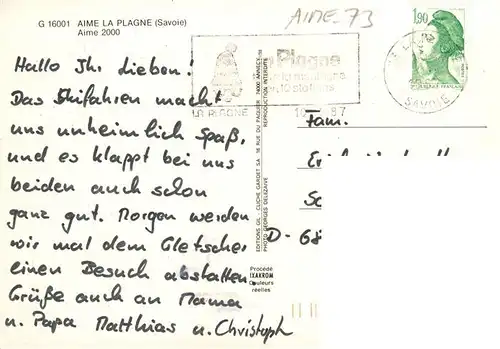 G 16001 AIME LA PLAGNE (Savoie)
Aime 2000
AIME-73
1,90
La Plagne
LA PLAGNE
SAVOIE
Hallo Ihr Lieben!
Das Skifahren macht
uns unheimlich Spaß,
und es klappt bei uns
beiden auch schon
ganz gut. Morgen werden
wir mal dem Gletscher
einen Besuch abstatten
Grüße auch an Mama
u. Papa Matthias u. Christoph
EDITIONS GIL - CLICHÉ GARDET SA 18 RUE DU PAQUIER 74000 ANNECY
PHOTO GEORGES DELEZAIVE REPRODUCTION INTERDITE
Procédé
IXAKROM
Couleurs
réelles
Fam.
D-68